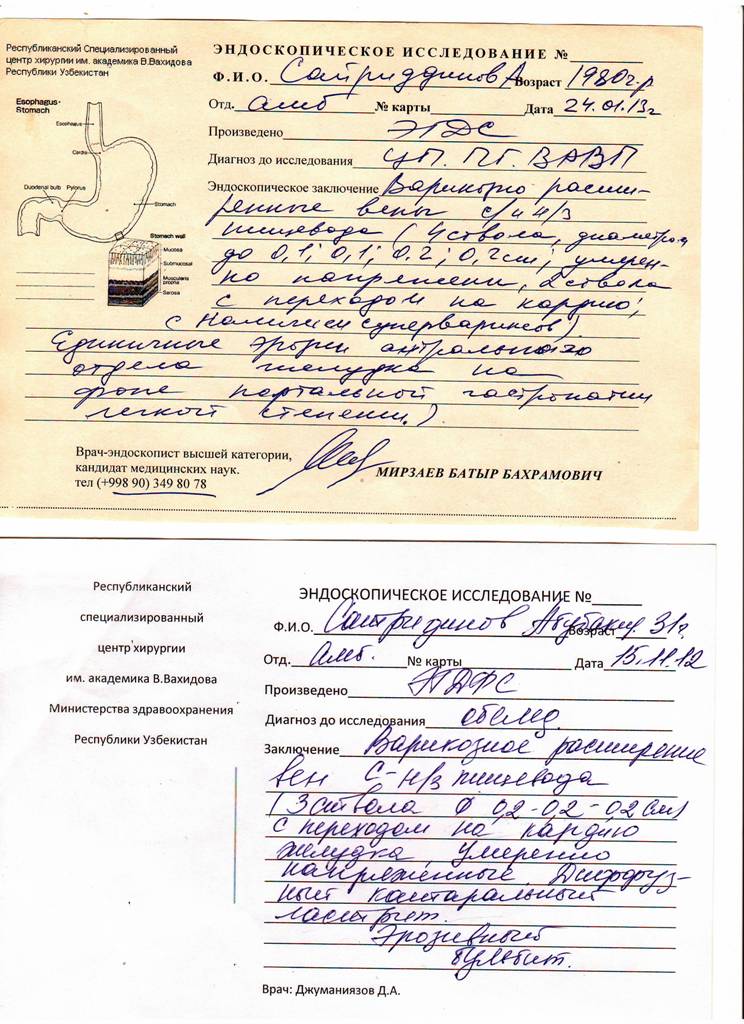 Республиканский Специализированный
центр хирургии им. академика В.Вахидова
Республики Узбекистан
ЭНДОСКОПИЧЕСКОЕ ИССЛЕДОВАНИЕ №
Ф.И.О. Сатриддинов А Возраст 1980 г.р
Отд. амб № карты Дата 24.01.13г
Произведено ЭГДС
Диагноз до исследования ЦП. ПГ. ВАВП
Эндоскопическое заключение Варикозно расши-
ренные вены с/и н/з
пищевода (4 ствола, диаметром
до 0,1; 0,1; 0.2; 0,2см; умерен-
но напряжени, 2 ствола
с переходом на кардию,
с наличием суперварикозов).
Единичные эрозии антрального
отдела желудка на
фоне портальной гастропатии
легкой степени.)
Esophagus-
Stomach
Esophagus
Cardia
Duodenal bulb
Pylorus
Stomach
Stomach wall
Mucosa
Submucosa
Muscularis
propria
Serosa
Врач-эндоскопист высшей категории,
кандидат медицинских наук.
тел (+998 90) 349 80 78
МИРЗАЕВ БАТЫР БАХРАМОВИЧ
Республиканский
специализированный
центр хирургии
им. академика В.Вахидова
Министерства здравоохранения
Республики Узбекистан
ЭНДОСКОПИЧЕСКОЕ ИССЛЕДОВАНИЕ №
Ф.И.О. Сатридинов Абубакир Возраст 31г.
Отд. Амб. № карты Дата 15.11.12
Произведено
Диагноз до исследования обслед.
Заключение Варикозное расширение
вен С-н/з пищевода
(3 ствола Ф 0,2-0,2-0,2 см)
с переходом на кардию
желудка, умеренно
напряженные. Диффуз-
ный катаральный
гастрит.
Эрозивный
бульбит.
Врач: Джуманиязов Д.А.